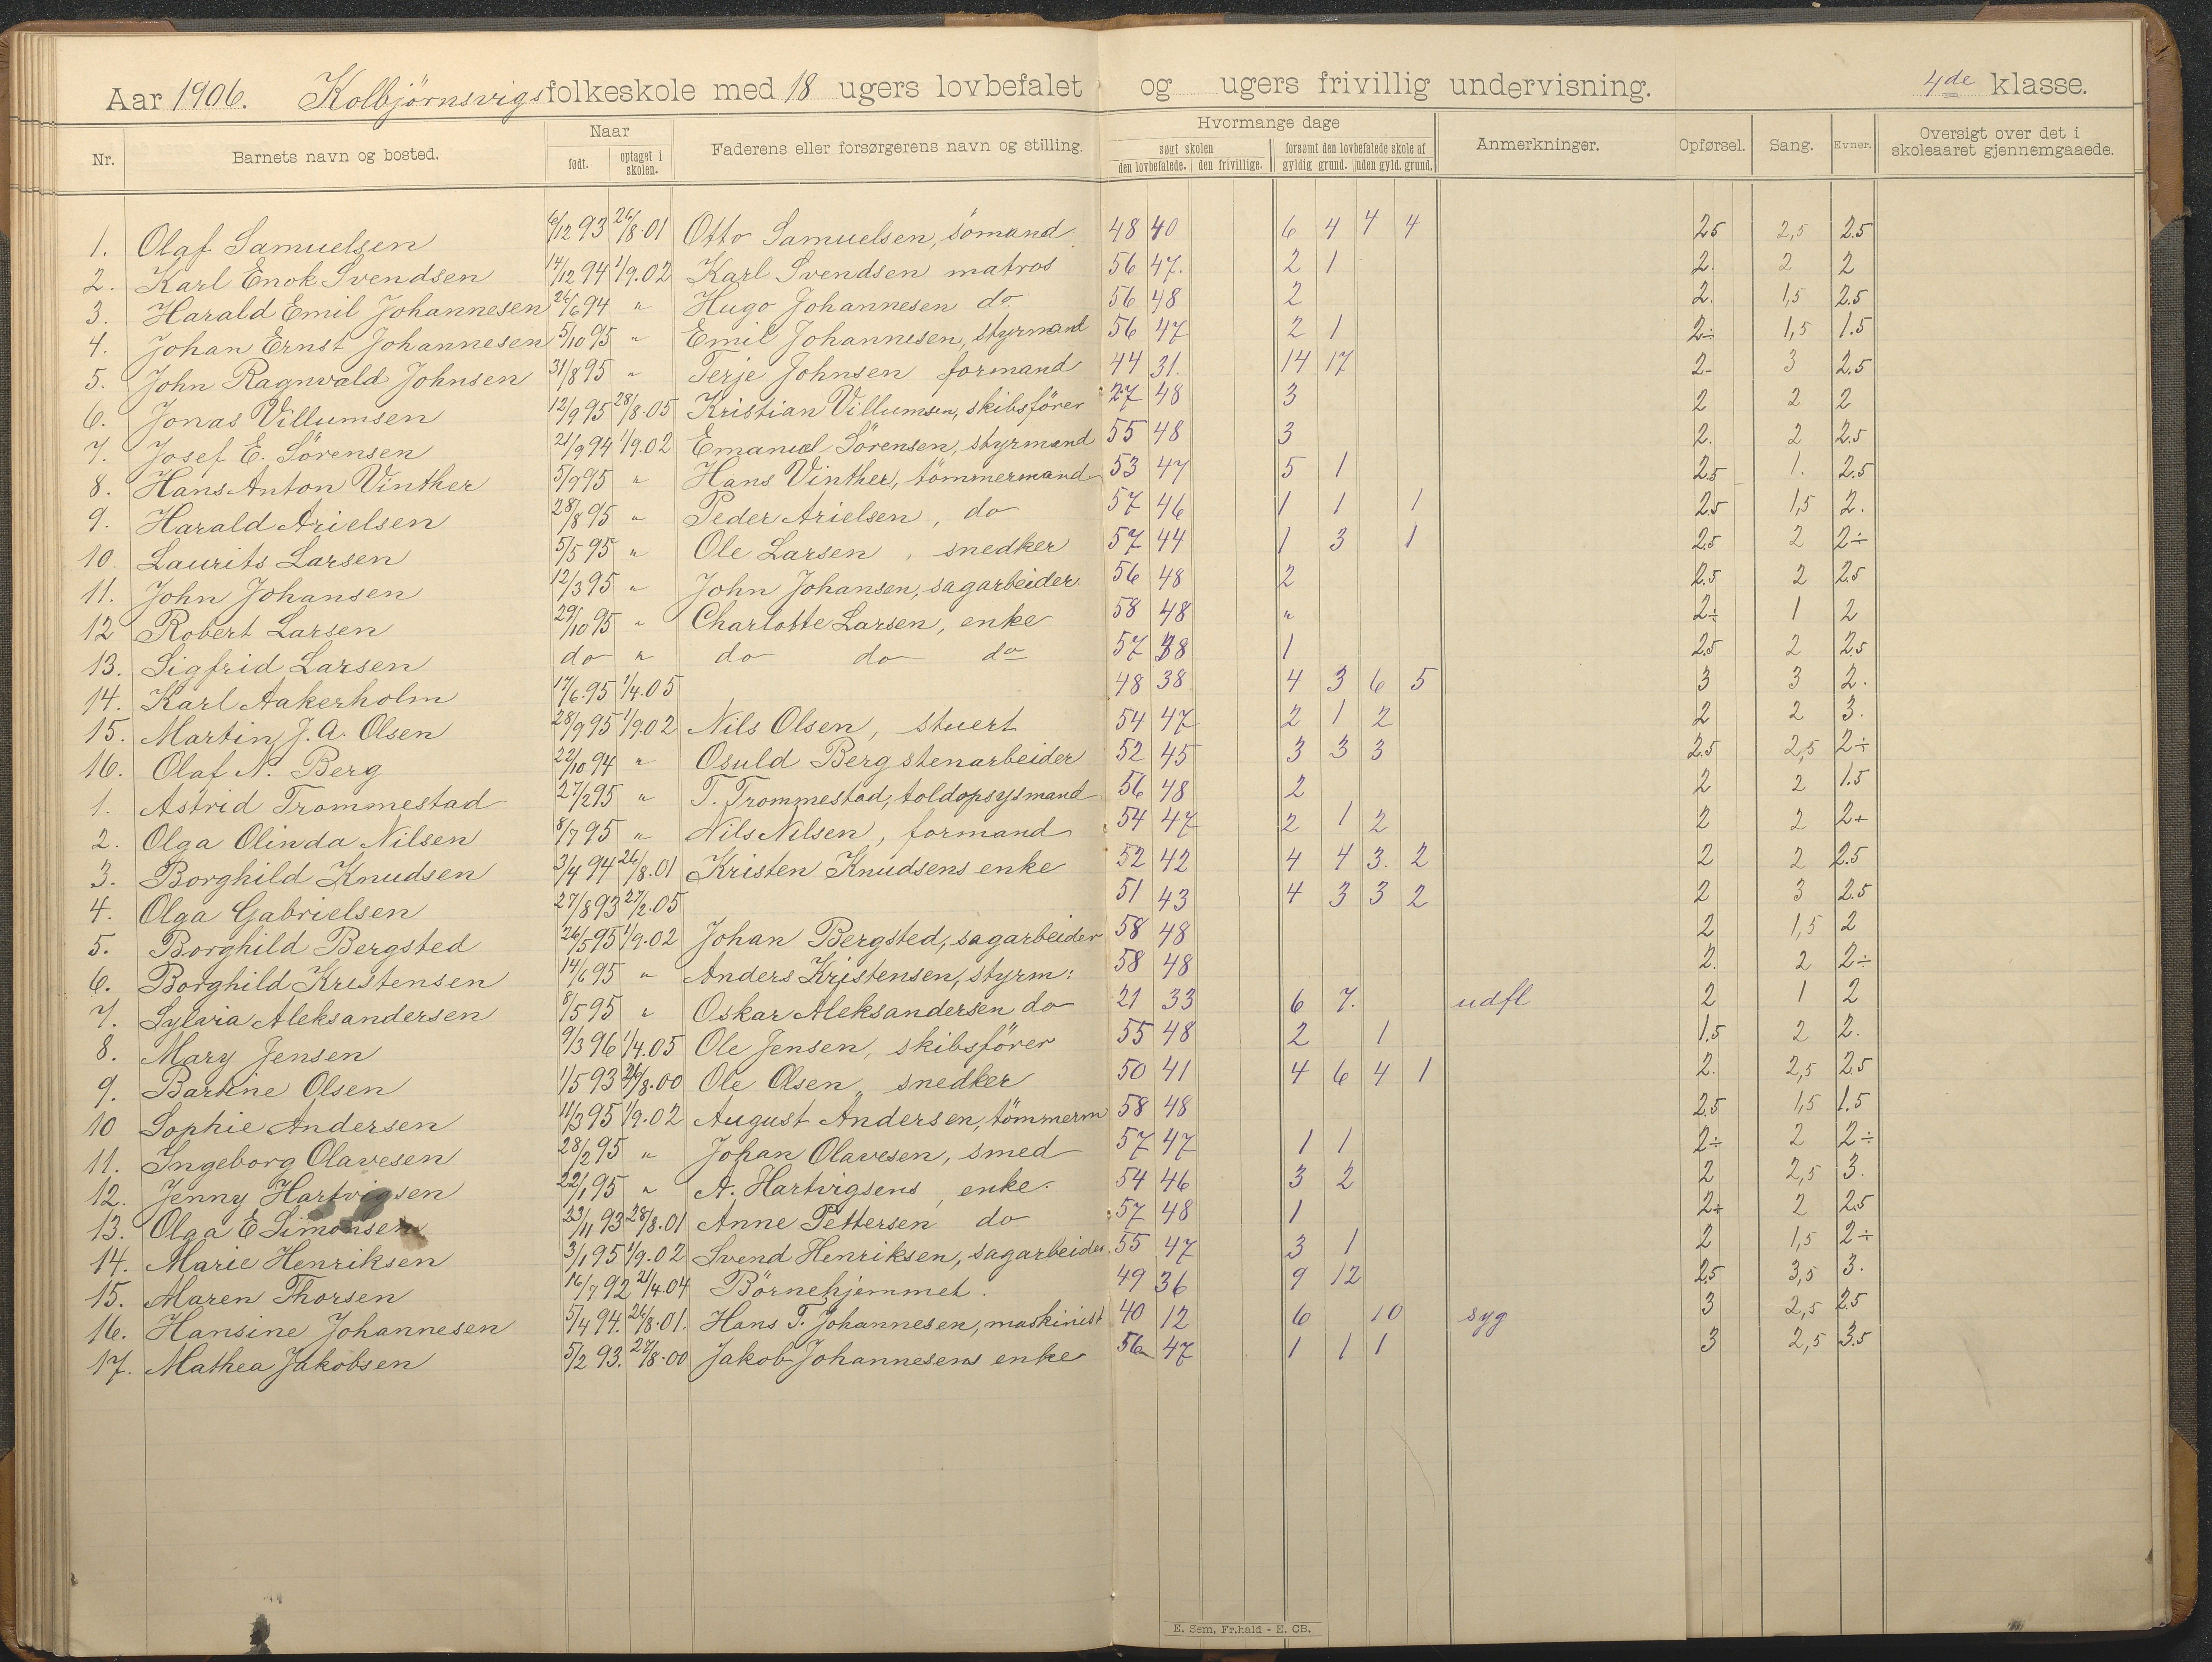 Aar 1906. Kolbjörnsvigs folkeskole med 18 ugers lovbefalet og ugers frivillig undervisning. 4de klasse.
Nr. Barnets navn og bosted. Naar født. optaget i skolen. Faderens eller forsørgerens navn og stilling. Hvormange dage søgt skolen den lovbefalede. den frivillige. forsømt den lovbefalede skole af gyldig grund. uden gyld. grund. Anmerkninger. Opførsel. Sang. Evner. Oversigt over det i skoleaaret gjennemgaaede.
1. Olaf Samuelsen 6/12 93 26/8.01 Otto Samuelsen, sömand 48 40 6 4 4 4 2.5 2,5 2.5
2. Karl Enok Svendsen 14/12 94 1/9.02 Karl Svendsen matros 56 47. 2 1 2. 2 2
3. Harald Emil Johannesen 26/6 94 " Hugo Johannesen do 56 48 2 2. 1,5 2.5
4. Johan Ernst Johannesen 5/10 95 " Emil Johannesen, styrmand 56 47 2 1 2÷ 1,5 1.5
5. John Ragnvald Johnsen 31/8 95 " Terje Johnsen formand 44 31. 14 17 2- 3 2.5
6. Jonas Villumsen 12/9 95 28/8.05 Kristian Villumsen, skibsförer 27 48 3 2 2 2
7. Josef E. Sörensen 21/9 94 1/9.02 Emanuel Sörensen, styrmand 55 48 3 2. 2 2.5
8. Hans Anton Vinther 5/9 95 " Hans Vinther, tömmermand 53 47 5 1 2.5 1. 2.5
9. Harald Arielsen 28/8 95 " Peder Arielsen, do 57 46 1 1 1 2.5 1,5 2.
10. Laurits Larsen 5/5 95 " Ole Larsen, snedker 57 44 1 3 1 2.5 2 2÷
11. John Johansen 12/3 95 " John Johansen, sagarbeider 56 48 2 2.5 2 2.5
12 Robert Larsen 29/10 95 " Charlotte Larsen, enke 58 48 " 2÷ 1 2
13. Sigfrid Larsen do " do do do 57 38 1 2.5 2 2.5
14. Karl Aakerholm 17/6.95 1/4.05 48 38 4 3 6 5 3 3 2.
15. Martin J. A. Olsen 28/9 95 1/9.02 Nils Olsen, stuert 54 47 2 1 2 2 2 3.
16. Olaf N. Berg 22/10 94 " Osuld Berg stenarbeider 52 45 3 3 3 2.5 2,5 2÷
1. Astrid Trommestad 27/2 95 " T. Trommestad, toldopsysmand 56 48 2 2 2 1.5
2. Olga Olinda Nilsen 8/7 95 " Nils Nilsen, formand 54 47 2 1 2 2 2 2+
3. Borghild Knudsen 3/4 94 26/8.01 Kristen Knudsens enke 52 42 4 4 3. 2 2 2 2.5
4. Olga Gabrielsen 27/8 93 27/2.05 51 43 4 3 3 2 2 3 2.5
5. Borghild Bergsted 26/5 95 1/9.02 Johan Bergsted, sagarbeider 58 48 2 1,5 2
6. Borghild Kristensen 14/6 95 " Anders Kristensen, styrm: 58 48 2. 2 2÷
7. Sylvia Aleksandersen 8/5 95 " Oskar Aleksandersen do 21 33 6 7. udfl 2 1 2
8. Mary Jensen 9/3 96 1/4.05 Ole Jensen, skibsförer 55 48 2 1 1.5 2 2.
9. Bartine Olsen 1/5 93 26/8.00 Ole Olsen, snedker 50 41 4 6 4 1 2. 2,5 2.5
10 Sophie Andersen 11/3 95 1/9.02 August Andersen, tömmerm 58 48 2.5 1,5 1.5
11. Ingeborg Olavesen 28/2 95 " Johan Olavesen, smed 57 47 1 1 2÷ 2 2÷
12. Jenny Hartvigsen 22/1 95 " A. Hartvigsens, enke 54 46 3 2 2 2,5 3.
13. Olga E Simonsen 23/11 93 28/8.01 Anne Pettersen do 57 48 1 2+ 2 2.5
14. Marie Henriksen 3/1 95 1/9.02 Svend Henriksen, sagarbeider 55 47 3 1 2 1,5 2÷
15. Maren Thorsen 16/7 92 21/4.04 Börnehjemmet. 49 36 9 12 2.5 3,5 3.
16. Hansine Johannesen 5/4 94. 26/8.01. Hans T. Johannesen, maskinist 40 12 6 10 syg 3 2,5 2.5
17. Mathea Jakobsen 5/2 93. 27/8.00 Jakob Johannesens enke 56 47 1 1 1 3 2,5 3.5
E. Sem, Fr.hald - E. CB.